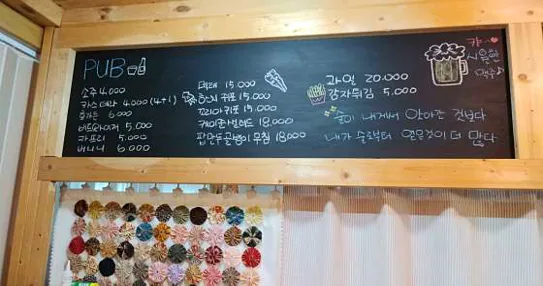 PUB
소주 4,000
카스 테라 4,000 (4+1)
6,000
버드와이저 5,000
카프리 5,000
버니니 6,000
먹태 15,000
쥐포 15,000
꼬리아귀포 15,000
케이준샐러드 18,000
골뱅이무침 18,000
과일 20,000
감자튀김 5,000
캬~
시원한
맥주
술이 내게서 앗아간 것보다
내가 술로부터 얻은것이 더 많다